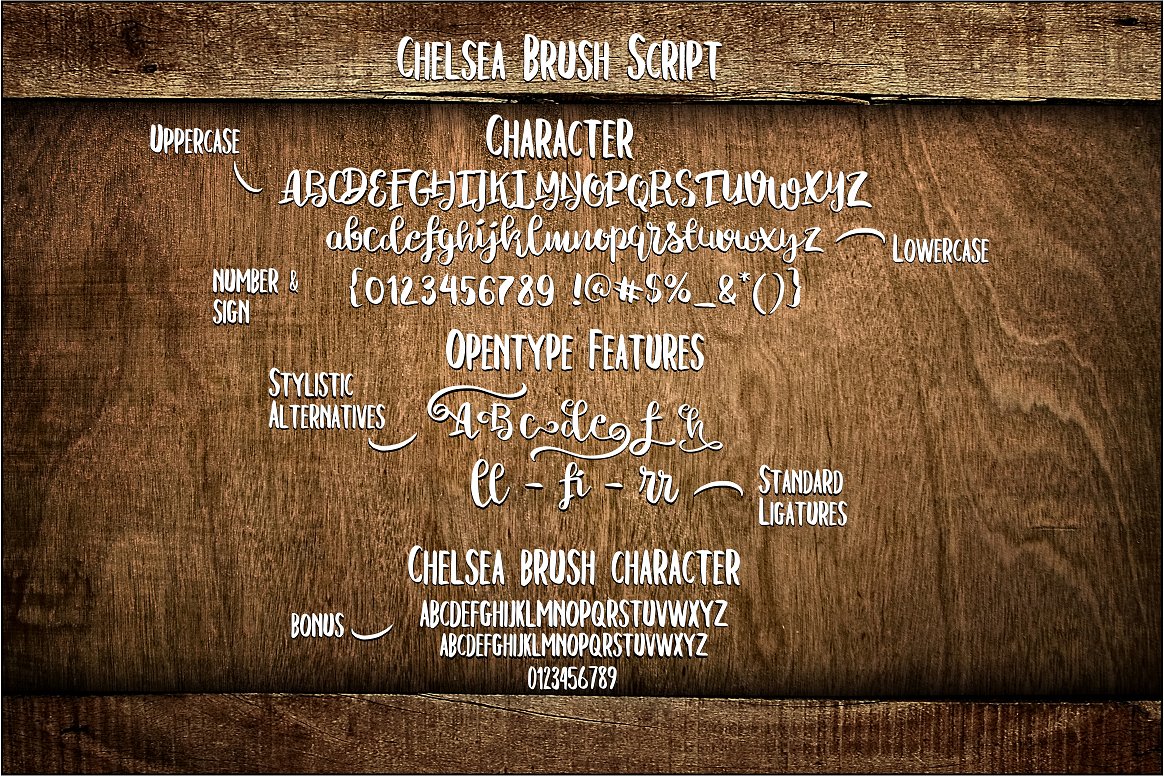 Chelsea Brush Script
Character
Uppercase
ABCDEFGHIJKLMNOPQRSTUVWXYZ
abcdefghijklmnopqrstuvwxyz
Lowercase
number &
sign
{0123456789 !@#$%_&*()}
Opentype Features
Stylistic
Alternatives
ABcdefh
ll - fi - rr
Standard
Ligatures
Chelsea brush character
bonus
ABCDEFGHIJKLMNOPQRSTUVWXYZ
ABCDEFGHIJKLMNOPQRSTUVWXYZ
0123456789